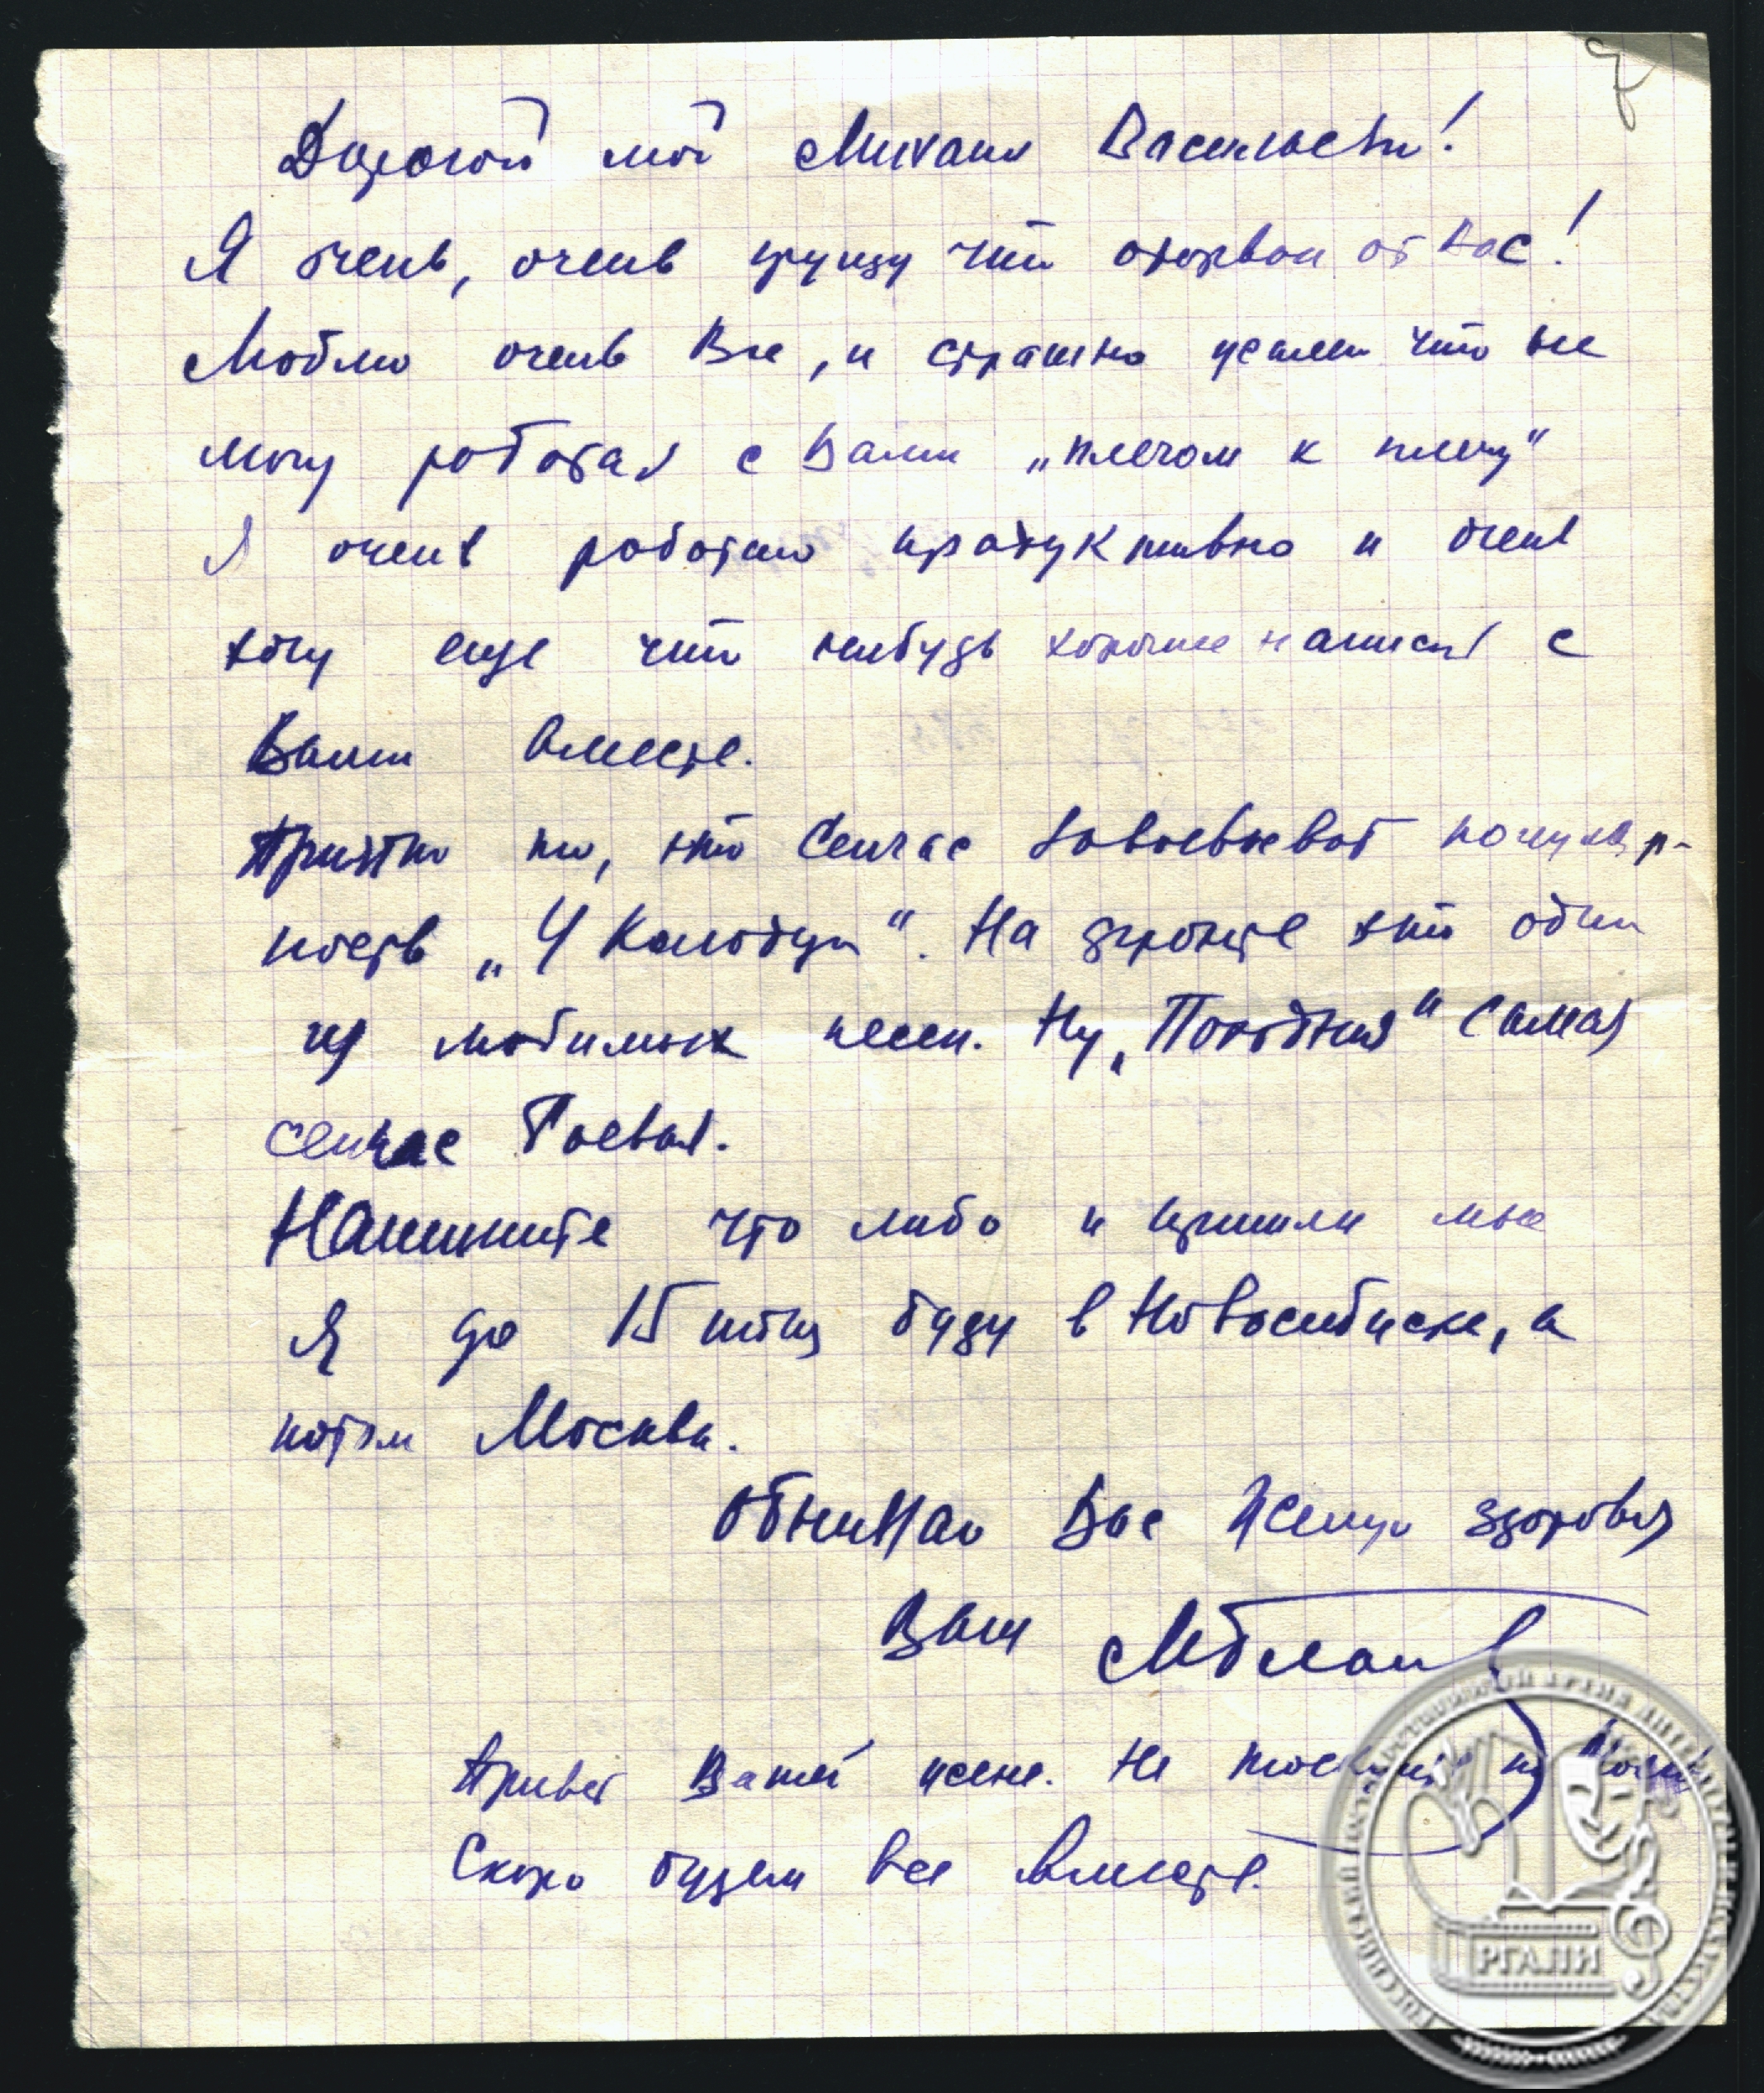 Дорогой мой Михаил Васильевич!
Я очень, очень грущу что оторван от Вас!
Люблю очень Вас, и страшно жалею что не
могу работать с Вами „плечом к плечу“
Я очень работаю продуктивно и очень
хочу еще что нибудь хорошее написать с
Вами вместе.
Приятно то, что сейчас завоевывает популяр-
ность „У колодца“. На фронте это одна
из любимых песен. Ну, „Походная“ самая
сейчас боевая.
Напишите что либо и пришли мне
Я до 15 июня буду в Новосибирске, а
потом Москва.
Обнимаю Вас Желаю здоровья
Ваш МБлан
Привет Вашей жене. Не тоскуйте по
Скоро будем все вместе.
РГАЛИ